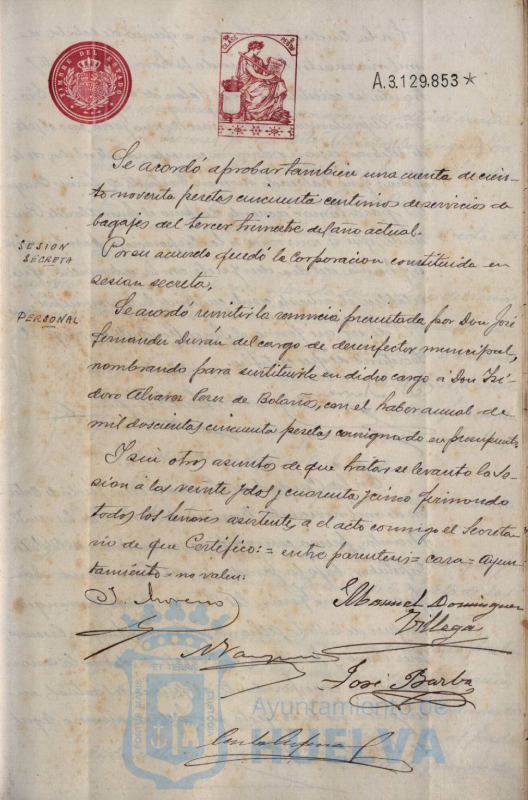 TIMBRE DEL ESTADO
A.3.129.853 *
Se acordó aprobar tambien una cuenta de cien-
to noventa pesetas cincuenta centimos de servicios de
bagajes del tercer trimestre del año actual.
SESION
SECRETA
Por su acuerdo quedó la Corporacion constituida en
sesion secreta,
PERSONAL
Se acordó remitir la renuncia presentada por Don José
Fernandez Durán del cargo de desinfector municipal,
nombrando para sustituirlo en dicho cargo á Don Isi-
doro Alvarez Perez de Bolaños, con el haber anual de
mil doscientas cincuenta pesetas consignado en presupuesto.
I sin otros asuntos de que tratar se levantó la se-
sion á las veinte y dos y cuarenta y cinco firmando
todos los señores asistentes a el acto conmigo el Secreta-
rio de que Certifico: = entre parentesis = casa = Ayun-
tamiento = no valen:
J. Moreno
Manuel Dominguez
Villega
José Barba
PORTUS MARIS ET TERRAE CUSTODIA
Ayuntamiento de
HUELVA